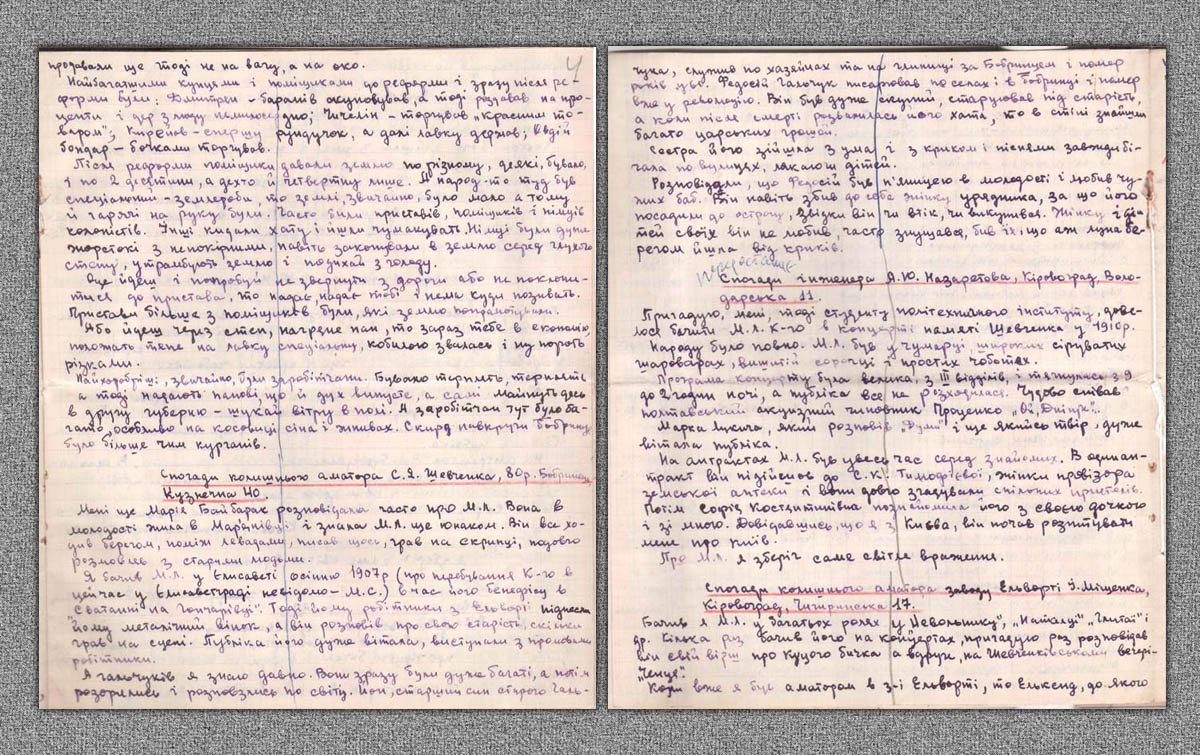 продавали ще тоді не на вагу, а на око.
4
Найбагатшими купцями і поміщиками до реформи і зразу після ре-
форми були: Димитрен - баранів скуповував, а тоді роздавав на про-
центи і дер з люду немилосердно; Чичелін - торгував „красним то-
варом"; Кирєєв - спершу рундучок, а далі лавку держав; Овдій
бондар - бочками торгував.
Після реформи поміщики давали землю по різному, деякі, бувало,
і по 2 десятини, а дехто й четвертину лише. А народ-то тут був
спеціальний - землероби, то землі, звичайно, було мало а тому
й гарячі на руку були. Часто били приставів, поміщиків і німців
колоністів. Інші кидали хату і йшли чумакувать. Німці були дуже
жорстокі з непокірними, навіть закопували в землю серед глухого
степу, утрамбують землю і подихай з голоду.
Оце йдеш і попробуй не звернуть з дороги або не поклони-
тися до пристава, то надає, надає тобі і нема куди позивать.
Пристави більше з поміщиків були, які землю
Або йдеш через степ, нагряне пан, то зараз тебе в економію,
положать тебе на лавку спеціальну, кобилою звалась і ну пороть
різками.
Найхоробріші, звичайно, були заробітчани. Бувало терплять, терплять
а тоді надають панові, що й дух випустє, а самі майнуть десь
в другу губернію - шукай вітру в полі. А заробітчан тут було ба-
гато, особливо на косовиці сіна і жнивах. Скирд навкруги Бобринцю
було більше чим курганів.
Спогади колишнього аматора С.Я. Шевченка, 80 р. Бобринець
Кузнечна 40.
Мені ще Марія Байбарак розповідала часто про М.Л. Вона в
молодості жила в Мар'янівці і знала М.Л. ще юнаком. Він все хо-
див берегом, поміж левадами, писав щось, грав на скрипці, подовго
розмовляв з старими людьми.
Я бачив М.Л. у Єлисаветі осінню 1907р (про перебування К-го в
цей час у Єлисаветграді невідомо - М.С.) в час його бенефісу в
„Сватанні на Гончарівці". Тоді йому робітники з Ельворті піднесли
йому металічний вінок, а він розповів про свою старість, скільки
грав на сцені. Публіка його дуже вітала, виступали з промовами
робітники.
Я Гальчуків я знаю давно. Вони зразу були дуже багаті, а потім
розорились і розповзись по світу. Йон, старший син старого Галь-
чука, служив по хазяїнах та на глинищі за Бобринцем і помер
років Федосій Гальчук писарював по селах і в Бобринці і помер
вже у революцію. Він був дуже скупий, старцював під старість,
а коли після смерті розвалилась його хата, то в стіні знайшли
багато царських грошей.
Сестра його зійшла з ума і з криком і піснями завжди бі-
гала по вулицях, лякаючи дітей.
Розповідали, що Федосій був п'яницею в молодості і любив чу-
жих баб. Він навіть збив до себе жінку урядника, за що його
посадили до острогу, звідки він чи втік, чи викупився. Жінку і ді-
тей своїх він не любив, часто знущався, бив їх, що аж луна бе-
регом йшла від криків.
Спогади інженера А.Ю. Назаретова, Кіровоград, Воло-
дарська 11.
Пригадую, мені, тоді студенту політехнічного інституту, дове-
лось бачити М.Л. К-го в концерті памяті Шевченка у 1910р.
Народу було повно. М.Л. був у чумарці, широких сіруватих
шароварах, вишитій сорочці і простих чоботях.
Програма концерту була велика, з III відділів, і тягнулась з 9
до 2 годин ночі, а публіка все не розходилась. Чудово співав
полтавський акцизний чиновник Проценко „Ой Дніпре"..
Марка Лукича, який розповів „Думи" і ще якийсь твір, дуже
вітала публіка.
На антрактах М.Л. був увесь час серед знайомих. В один ан-
тракт він підійшов до С.К. Тимофієвої, жінки провізора
земської аптеки і вони довго згадували спільних приятелів.
Потім Софія Костянтинівна познайомила його з своєю дочкою
і зі мною. Довідавшись, що я з Києва, він почав розпитувать
мене про Київ.
Про М.Л. я зберіг саме світле враження.
Спогади колишнього аматора заводу Ельворті І. Міщенка,
Кіровоград, Чигиринська 17.
Бачив я М.Л. у багатьох ролях у „Невольнику", „Наталці" „Глитаї" і
др. Кілька раз бачив його на концертах, пригадую раз розповідав
він свій вірш про куцого бичка а вдруге, на Шевченківському вечорі -
„Ченця".
Коли вже я був аматором в з-і Ельворті, то Елькснд, до якого